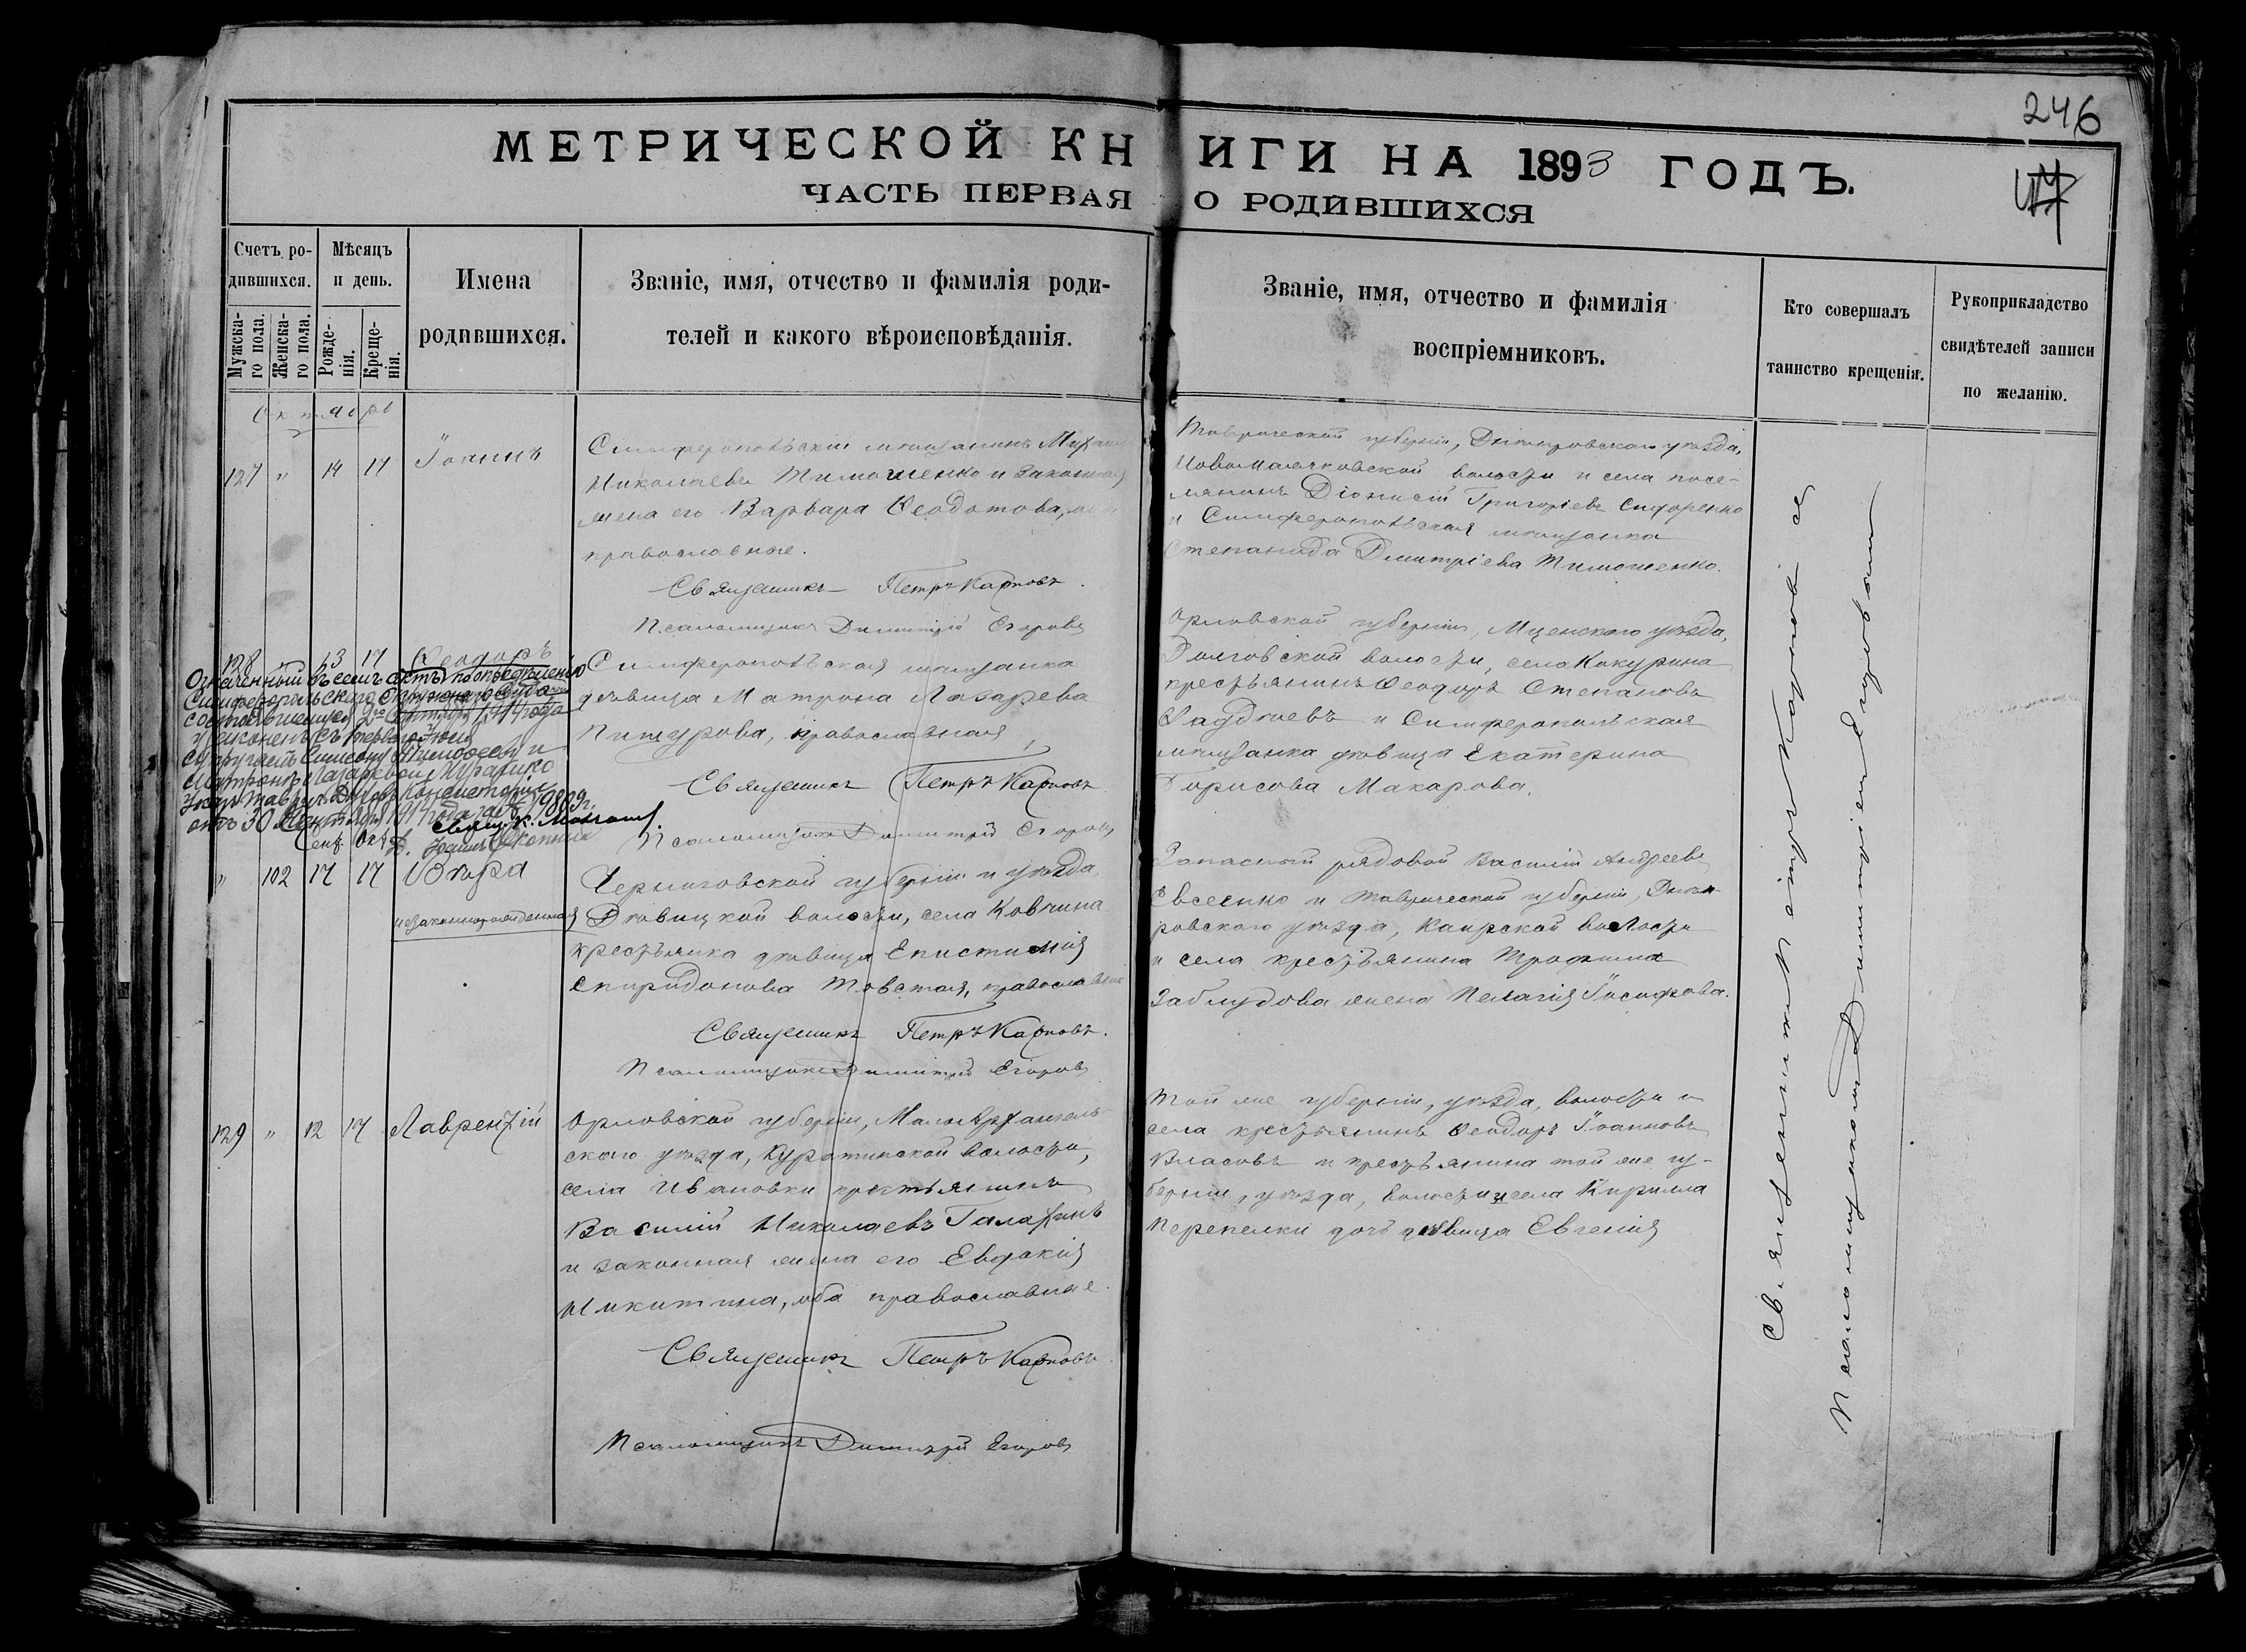 246
МЕТРИЧЕСКОЙ КНИГИ НА 1893 ГОДЪ.
ЧАСТЬ ПЕРВАЯ О РОДИВШИХСЯ
Счетъ ро-
дившихся.
Мужска-
го пола.
Женска-
го пола.
Мѣсяцъ
и день.
Рожде-
нія.
Креще-
нія.
Имена
родившихся.
Званіе, имя, отчество и фамилія роди-
телей и какого вѣроисповѣданія.
Званіе, имя, отчество и фамилія
воспріемниковъ.
Кто совершалъ
таинство крещенія.
Рукоприкладство
свидѣтелей записи
по желанію.
Октябрь
127 " 14 17 Іоаннъ
Симферопольскій мѣщанинъ
Николаевъ Тимошенко и законная
жена его Варвара Ѳеодотова,
православные.
Священникъ Петръ Карповъ.
Псаломщикъ Димитрій Егоровъ
Таврической губерніи, Днѣпровскаго уѣзда,
Новомаячковской волости и села посе-
лянинъ Діонисій Григорьевъ Сидоренко
и Симферопольская мѣщанка
Степанида Димитріева Тимошенко.
128 " 13 17 Ѳеодоръ
Означенный въ семъ актѣ по опредѣленію
Симферопольскаго Окружнаго Суда
состоявшемуся 2го 1914 года
узаконенъ
супругамъ
Матронѣ Лазаревой
Указъ Таврич. Духов. Консисторіи
отъ 30 Сентября 1914 года за № 19809.
Симферопольская мѣщанка
дѣвица Матрона Лазарева
Пищурова, православная
Священникъ Петръ Карповъ
Псаломщикъ Димитрій Егоровъ
Орловской губерніи, Мценскаго уѣзда,
Волговской волости, села Кокурина
крестьянинъ Ѳеодоръ Степановъ
и Симферопольская
мѣщанка дѣвица Екатерина
Борисова Макарова.
Сент. Окт.
" 102 17 17 Вѣра
незаконнорожденная
Черниговской губерніи и уѣзда,
Дѣвицкой волости, села Ковчина
крестьянка дѣвица Епистимія
Спиридонова Товстая, православная
Священникъ Петръ Карповъ.
Псаломщикъ Димитрій Егоровъ
Запасный рядовой Василій Андреевъ
Евсеенко и Таврической губерніи, Днѣп-
ровскаго уѣзда, Каирской волости
и села крестьянина Трофима
Заблудова жена Пелагія Іосифова.
129 " 12 17 Лаврентій
Орловской губерніи, Малоархангель-
скаго уѣзда, волости,
села Ивановки крестьянинъ
Василій Николаевъ
и законная жена его Евдокія
Никитина, оба православные.
Священникъ Петръ Карповъ.
Псаломщикъ Димитрій Егоровъ
Той же губерніи, уѣзда, волости и
села крестьянинъ Ѳеодоръ Іоанновъ
Власовъ и крестьянина той же гу-
берніи, уѣзда, волости и села Кирилла
Перепелки дочь дѣвица Евгенія
Священникъ Петръ Карповъ съ
Псаломщикомъ Димитріемъ Егоровымъ